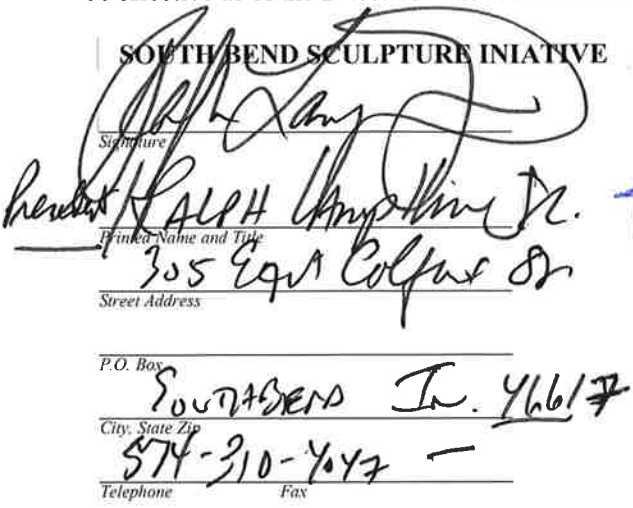 SOUTH BEND SCULPTURE INIATIVE
Signature
President RALPH Jr.
Printed Name and Title
305 East Colfax
Street Address
P.O. Box
SOUTH BEND In. 46617
City, State Zip
574-310-4047 —
Telephone Fax